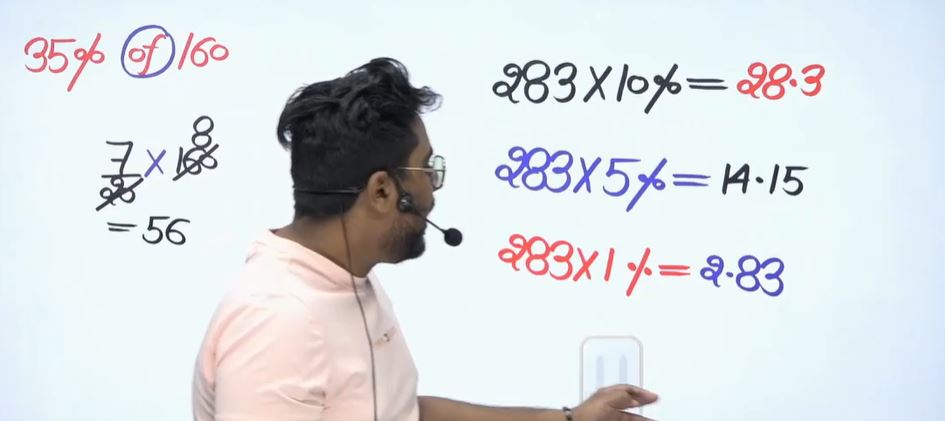 35% of 160
7/20 × 160 8
= 56
283 × 10% = 28.3
283 × 5% = 14.15
283 × 1% = 2.83